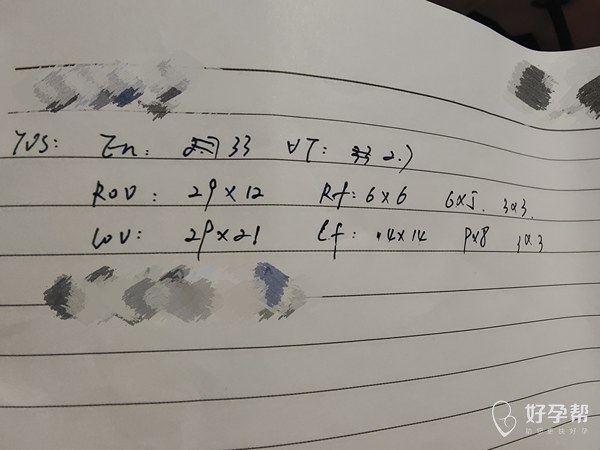 TVS: En: 33 UT: 2.7
ROV: 29×12 Rf: 6×6 6×5. 3×3.
LOV: 29×21 Lf: 14×14 9×8 3×3
好孕帮